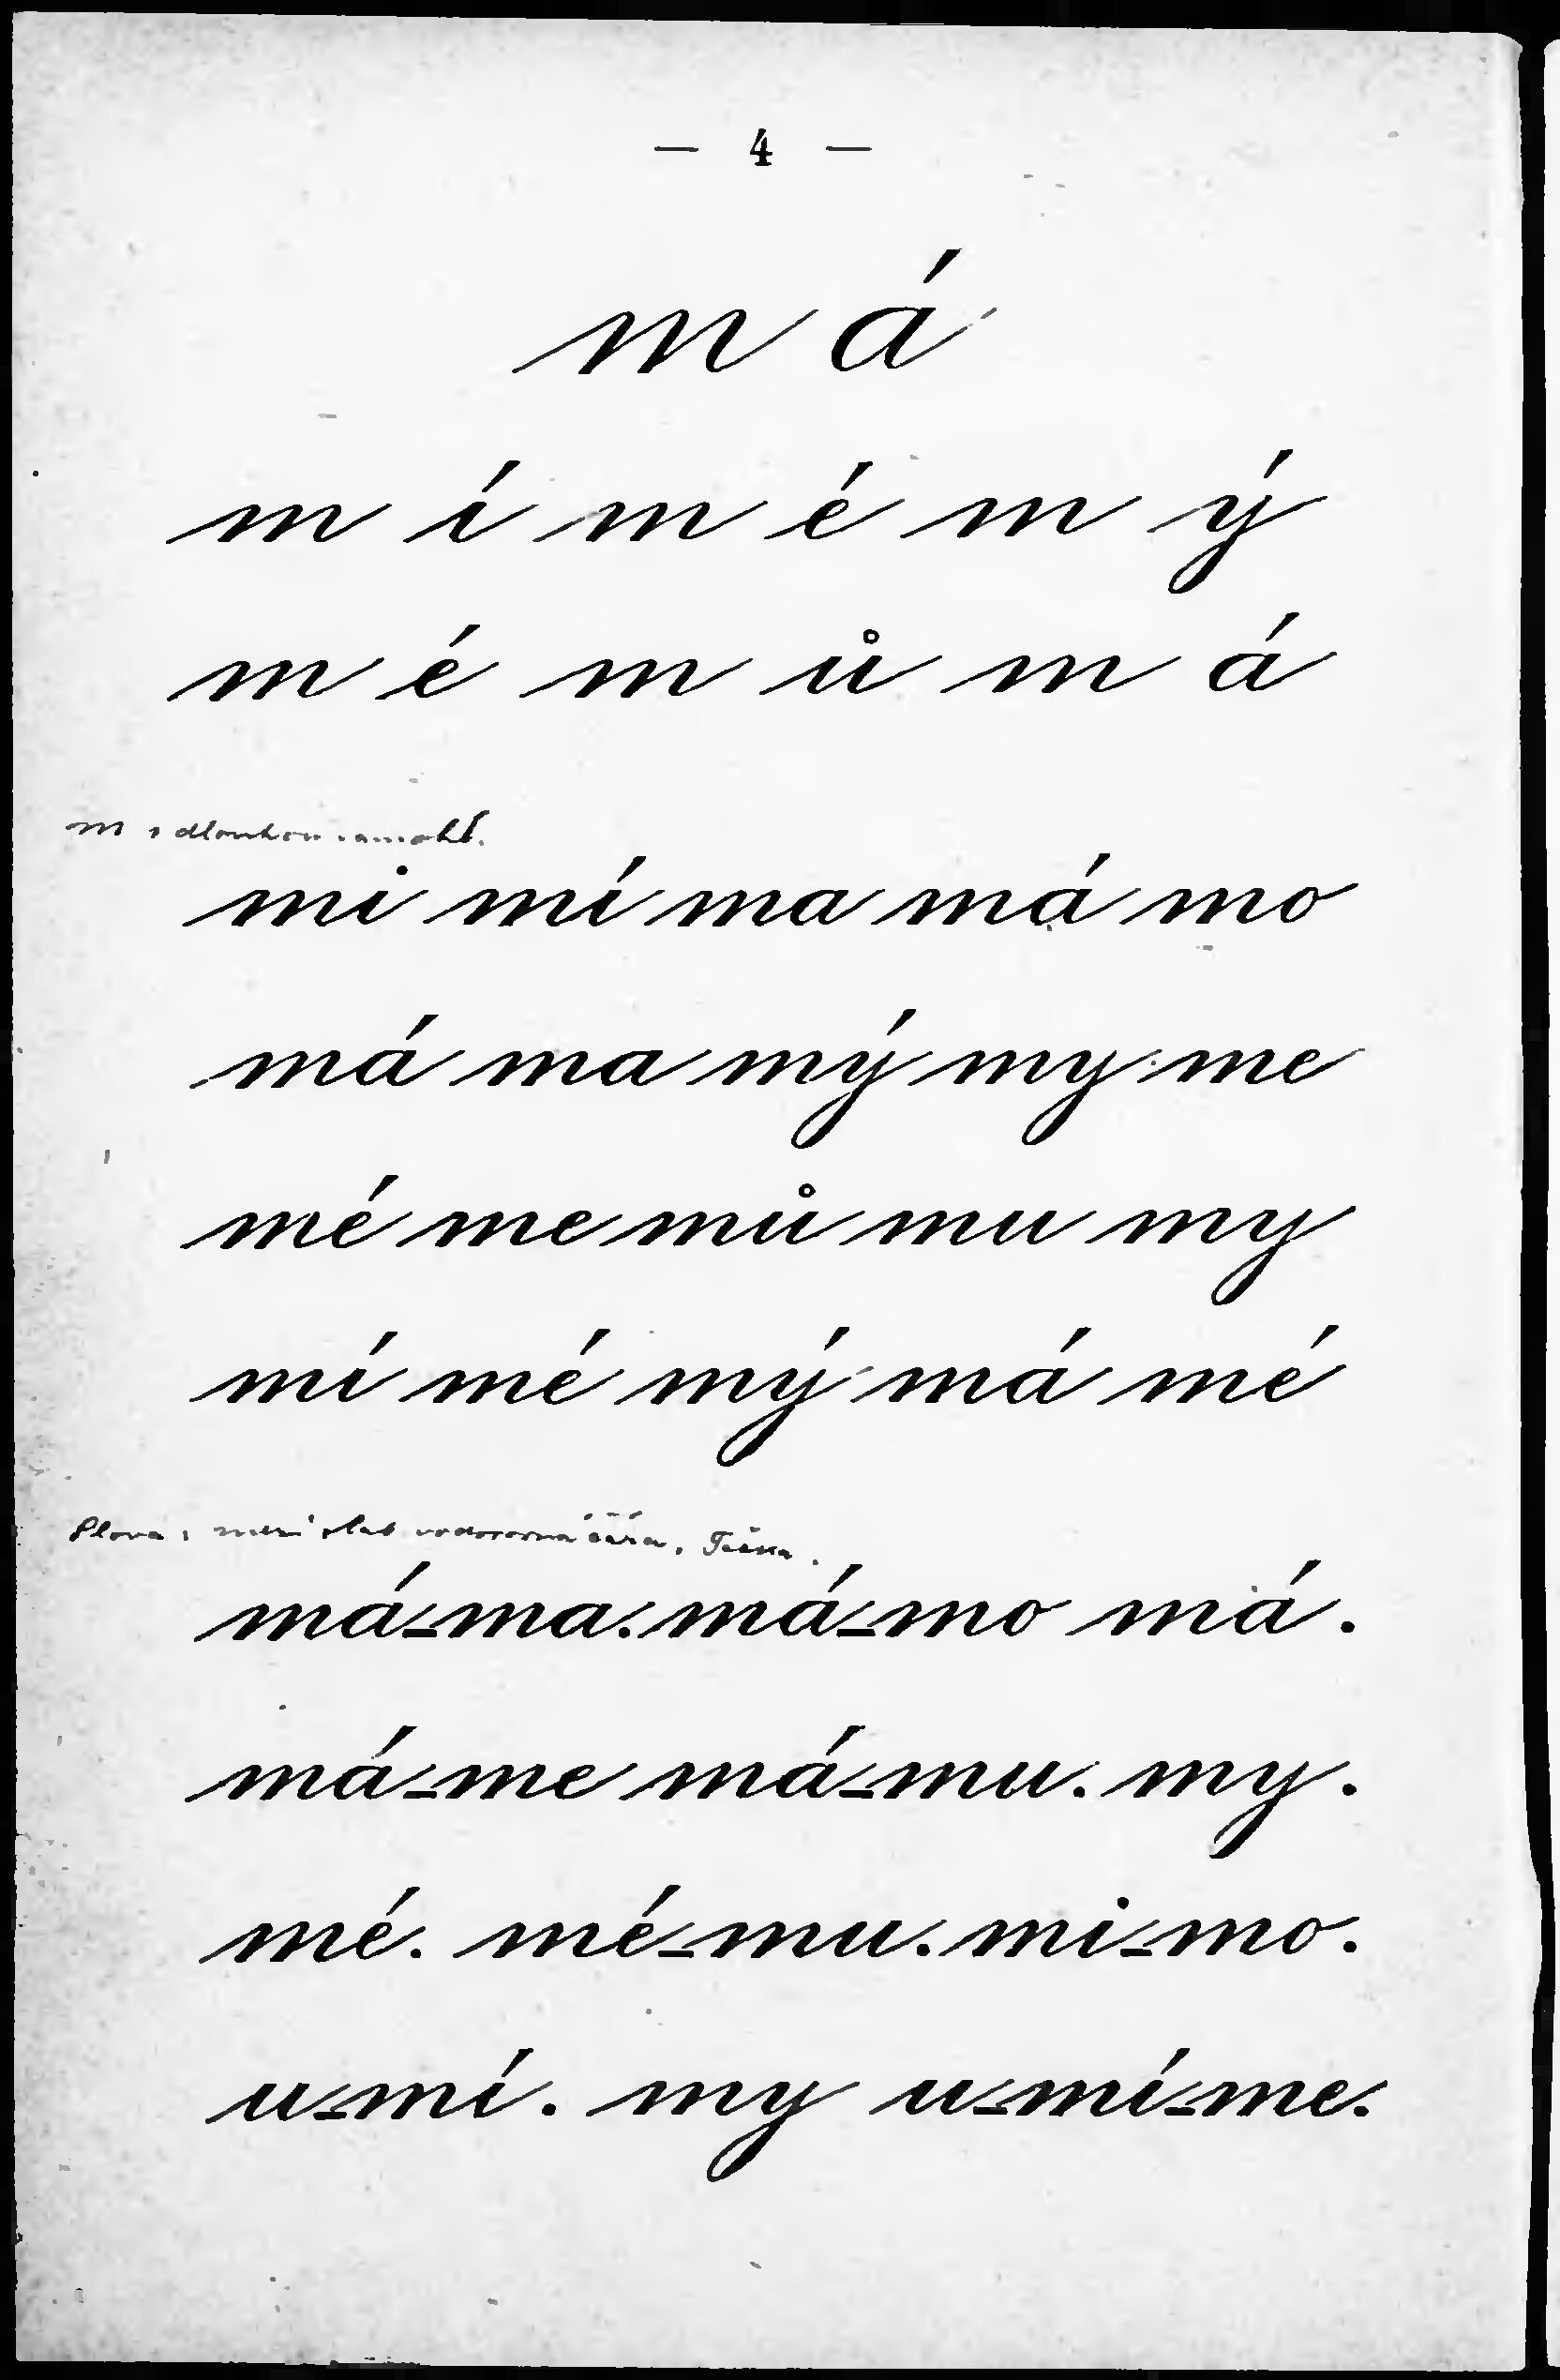 — 4 —
m á
m í m é m ý
m é m ů m á
m s dlouhou samohl.
mi mí ma má mo
má ma mý my me
mé me mů mu my
mí mé mý má mé
Slova; mezi slab vodorovná čára. Tečka.
má-ma. má-mo má.
má-me má-mu. my.
mé. mé-mu. mi-mo.
u-mí. my u-mí-me.